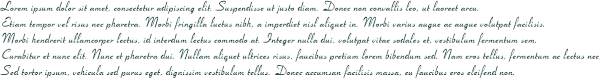 Lorem ipsum dolor sit amet, consectetur adipiscing elit. Suspendisse ut justo diam. Donec non convallis leo, ut laoreet arcu.
Etiam tempor vel risus nec pharetra. Morbi fringilla luctus nibh, a imperdiet nisl aliquet in. Morbi varius augue ac augue volutpat facilisis.
Morbi hendrerit ullamcorper lectus, id interdum lectus commodo at. Integer nulla dui, volutpat vitae sodales et, vestibulum fermentum sem.
Curabitur et nunc elit. Nunc et pharetra dui. Nullam aliquet ultrices risus, faucibus pretium lorem bibendum sed. Nam eros tellus, fermentum ac lectus nec,
Sed tortor ipsum, vehicula sed purus eget, dignissim vestibulum tellus. Donec accumsan facilisis massa, eu faucibus eros eleifend non.